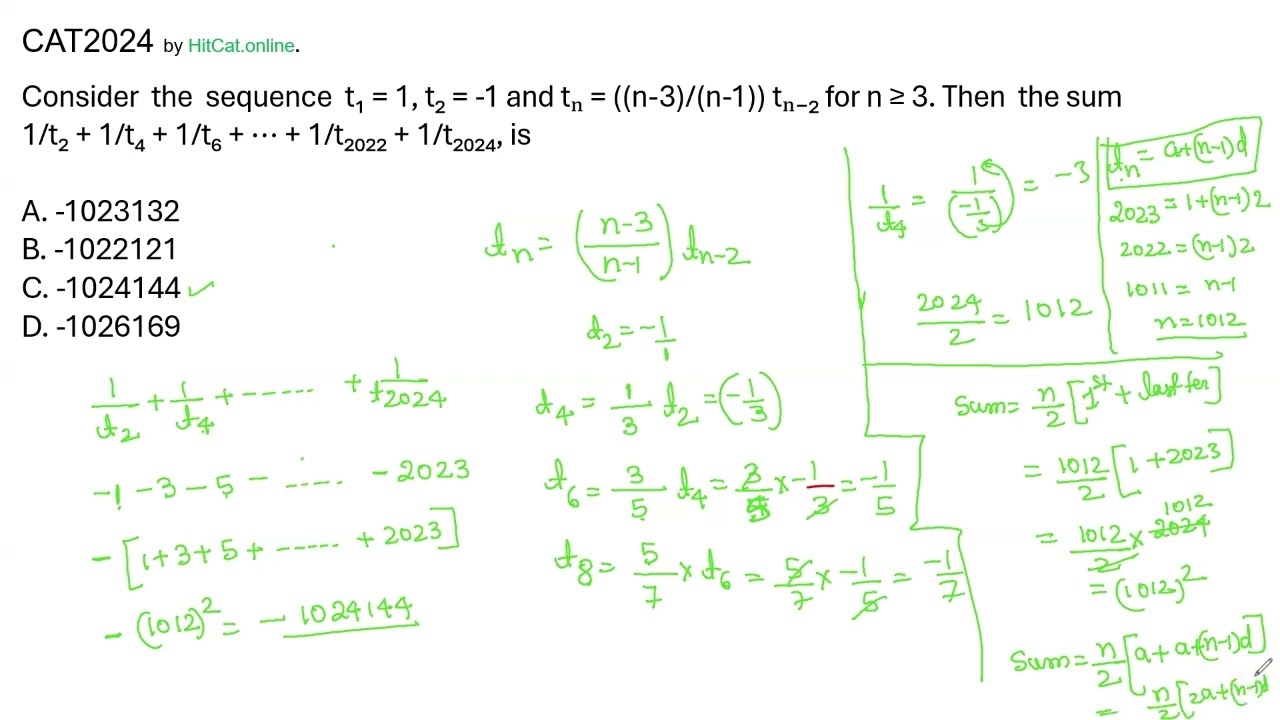 CAT2024 by HitCat.online.
Consider the sequence t₁ = 1, t₂ = -1 and tn = ((n-3)/(n-1)) tn−2 for n ≥ 3. Then the sum
1/t₂ + 1/t₄ + 1/t₆ + ⋯ + 1/t₂₀₂₂ + 1/t₂₀₂₄, is
A. -1023132
B. -1022121
C. -1024144 ✓
D. -1026169
1/t₂ + 1/t₄ + ------ + 1/t2024
-1 -3 -5 - ..... -2023
-[1+3+5+ ------ + 2023]
-(1012)² = -1024144
tn = ((n-3)/(n-1)) tn-2
t₂ = -1/1
t₄ = 1/3 t₂ = (-1/3)
t₆ = 3/5 t₄ = 3/5 × -1/3 = -1/5
t₈ = 5/7 × t₆ = 5/7 × -1/5 = -1/7
1/t₄ = 1/(-1/3) = -3
2024/2 = 1012
tn = a+(n-1)d
2023 = 1+(n-1)2
2022 = (n-1)2
1011 = n-1
n=1012
Sum = n/2 [1st + last ter]
= 1012/2 [1+2023]
= 1012/2 × 2024 1012
= (1012)²
Sum = n/2 [a+a+(n-1)d]
= n/2 [2a+(n-1)d